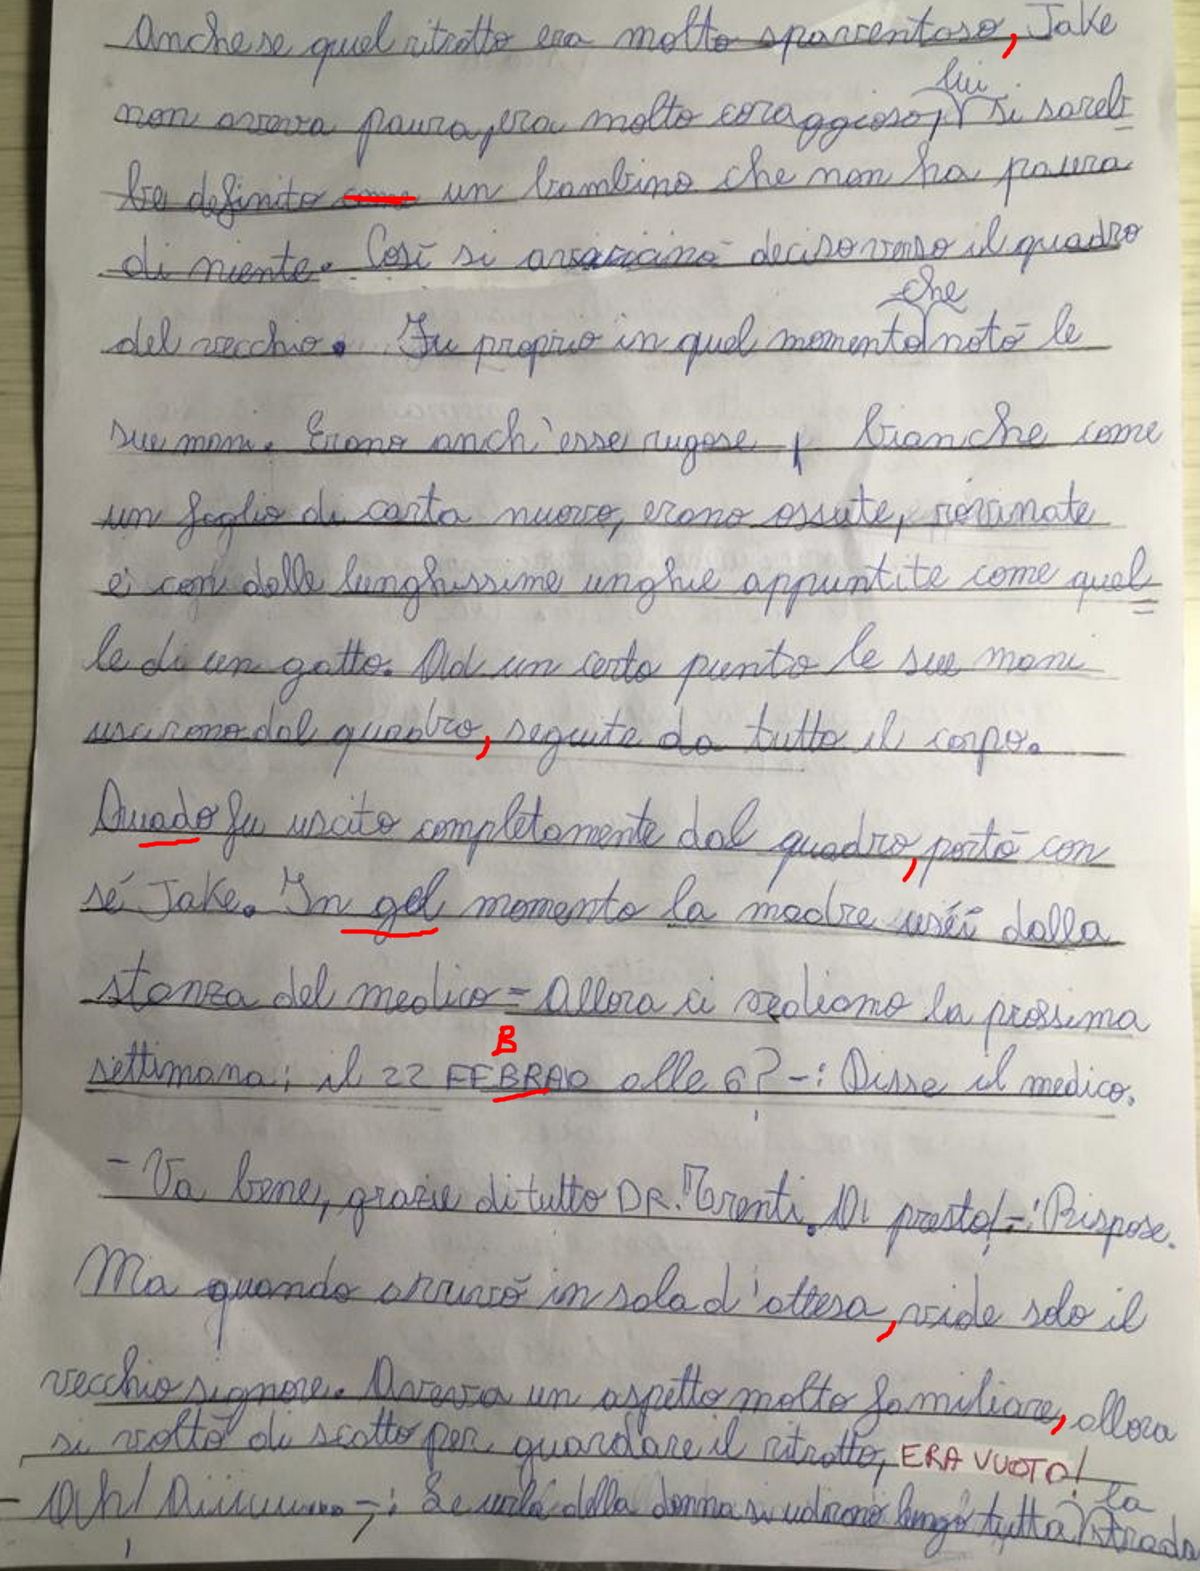 Anche se quel ritratto era molto spaventoso, Jake
lui
non aveva paura, era molto coraggioso, si sareb
be definito come un bambino che non ha paura
di niente. Così si avvicinò deciso verso il quadro
che
del vecchio. Fu proprio in quel momento notò le
sue mani. Erano anch'esse rugose, bianche come
un foglio di carta nuovo, erano ossute, rovinate
e con delle lunghissime unghie appuntite come quel
le di un gatto. Ad un certo punto le sue mani
uscirono dal quadro, seguite da tutto il corpo.
Quado fu uscito completamente dal quadro, portò con
sé Jake. In qel momento la madre uscì dalla
stanza del medico = Allora ci vediamo la prossima
B
settimana; il 22 FEBRAO alle 6? -: Disse il medico.
- Va bene, grazie di tutto DR. Trenti. A presto! -: Rispose.
Ma quando arrivò in sala d'attesa, vide solo il
vecchio signore. Aveva un aspetto molto familiare, allora
si voltò di scatto per guardare il ritratto, ERA VUOTO!
la
- Ah! Aiiiuuuuo -; : Le urla della donna si udirono lungo tutta strada